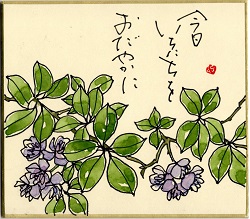 今日
いちにちを
おだやかに